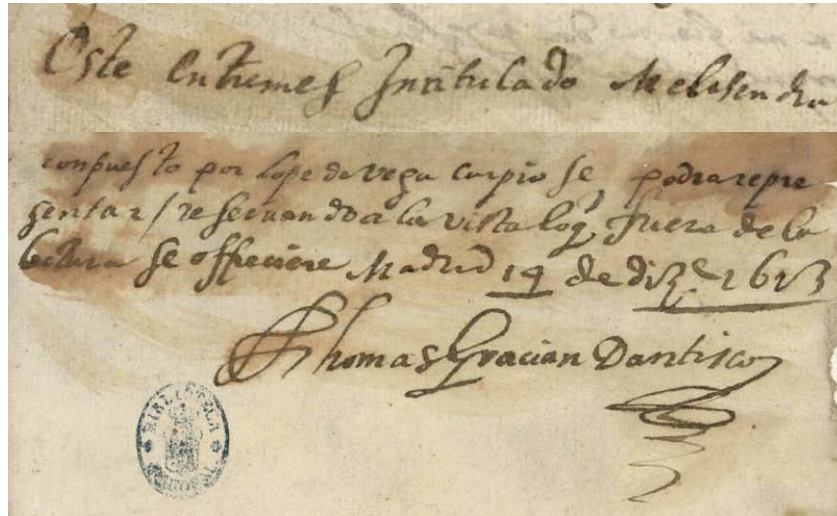 Este entremes Intitulado Melisendra
conpuesto por lope de vega carpio se podra repre
sentar / reservando a la vista lo q fuera de la
lectura se offreciere Madrid 14 de diz.e 1613
Thomas Gracian Dantisco
BIBLIOTECA